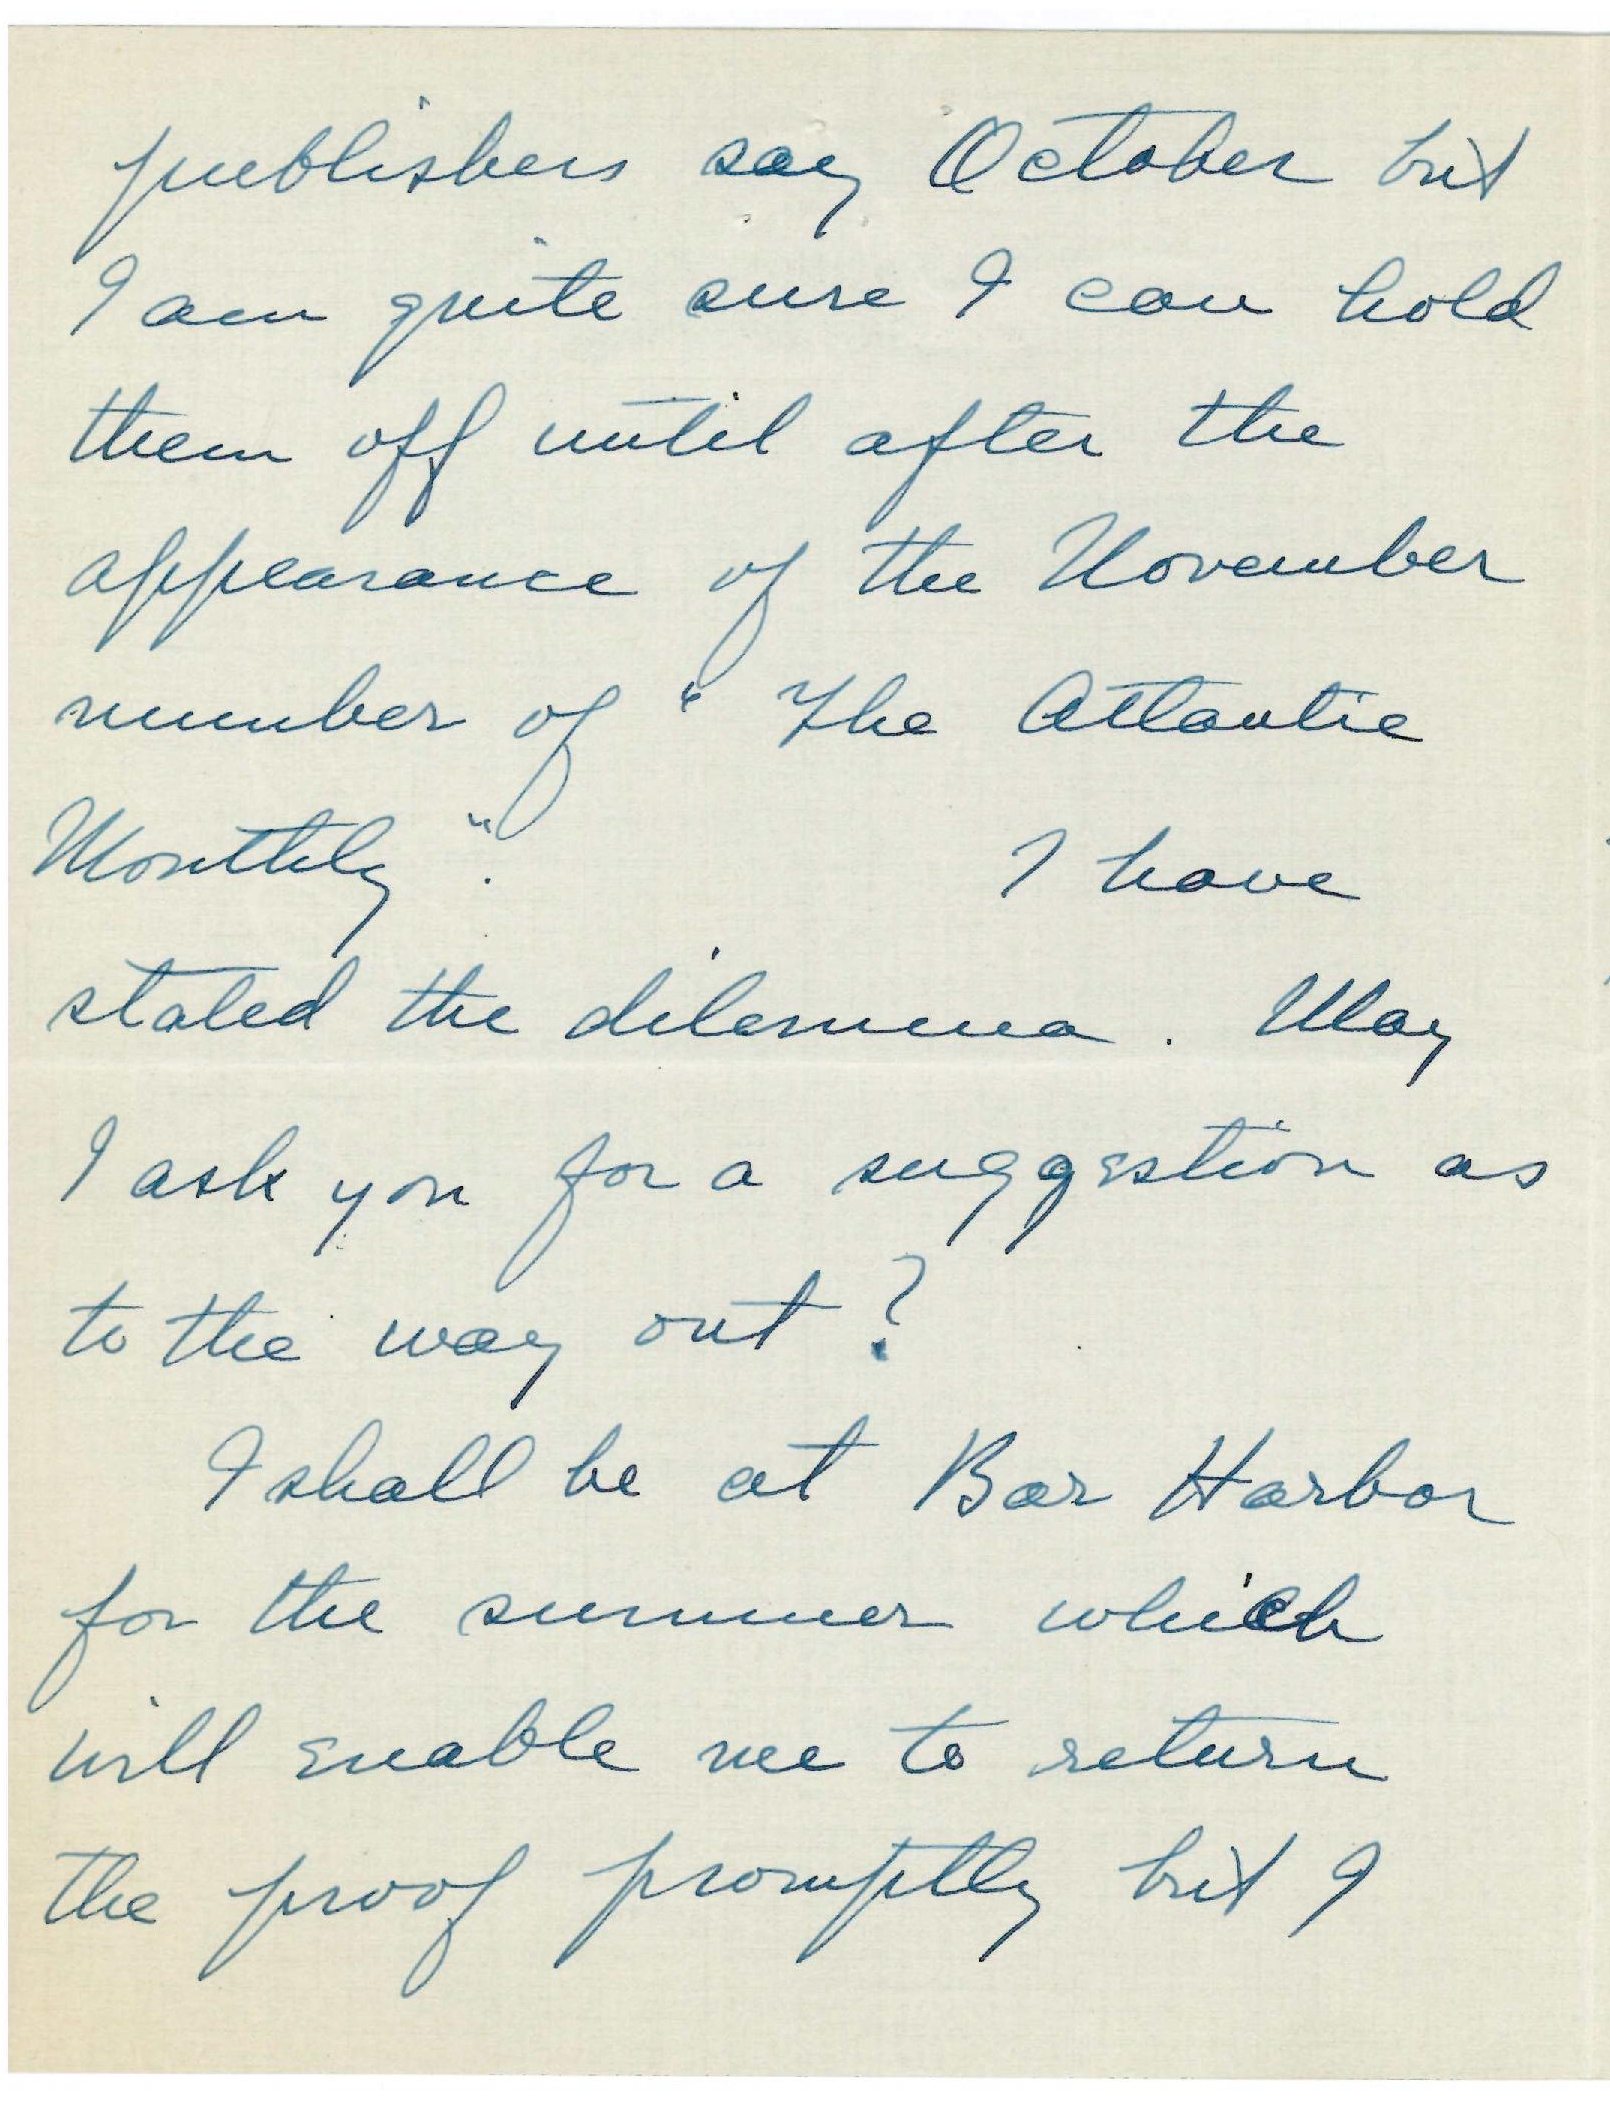 publishers say October but
I am quite sure I can hold
them off until after the
appearance of the November
number of "The Atlantic
Monthly". I have
stated the dilemma. May
I ask you for a suggestion as
to the way out?
I shall be at Bar Harbor
for the summer which
will enable me to return
the proof promptly but I